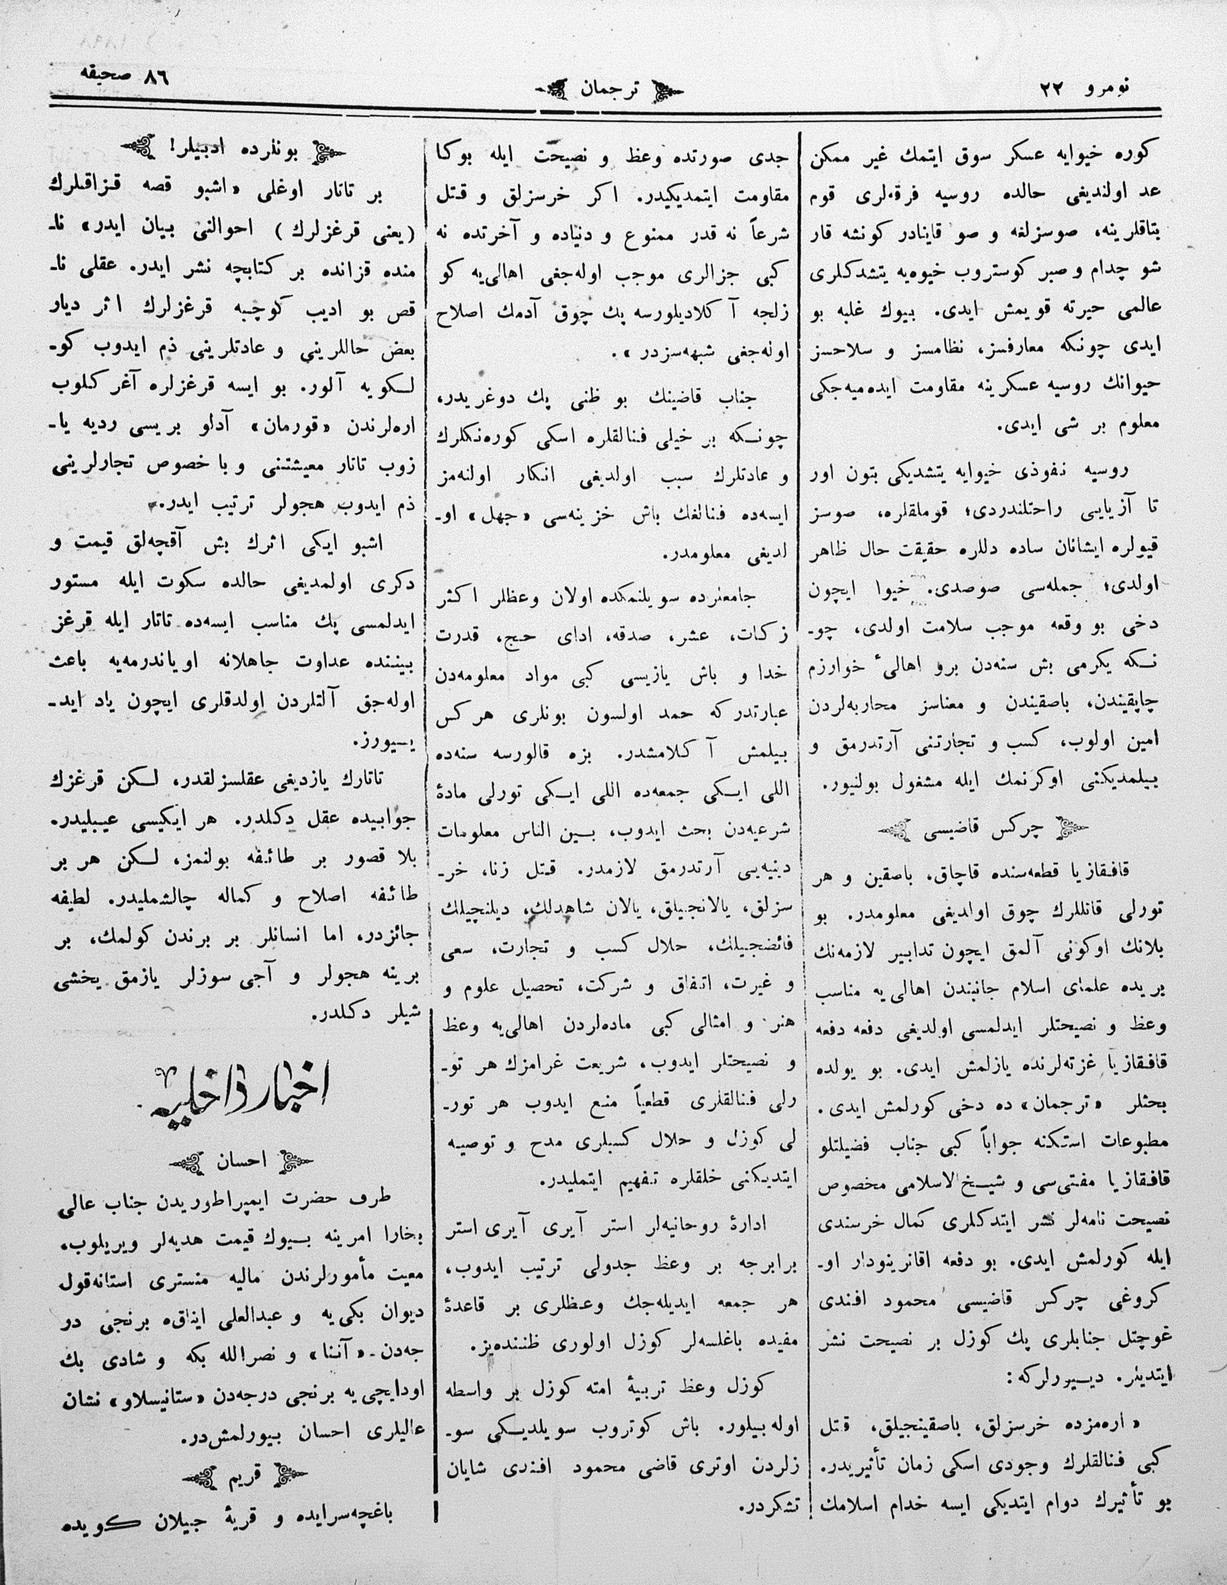 نومرو ٢٢
ترجمان
٨٦ صحيفه
كوره خيوايه عسكر سوق ايتمك غير ممكن
عد اولنديغى حالده روسيه فرقه‌لرى قوم
بتاقلرينه، صوسزلغه و صو قاينادر كونشه قار
شو چدام و صبر كوستروب خيوه‌يه يتشدكلرى
عالمى حيرته قويمش ايدى. بيوك غلبه بو
ايدى چونكه معارفسز، نظامسز و سلاحسز
حيوانك روسيه عسكرينه مقاومت ايده‌ميه‌جكى
معلوم بر شى ايدى.
روسيه نفوذى خيوايه يتشديكى بتون اور
تا آزيايى راحتلندردى؛ قوملقلره، صوسز
قيولره ايشانان ساده دللره حقيقت حال ظاهر
اولدى؛ جمله‌سى صوصدى. خيوا ايچون
دخى بو وقعه موجب سلامت اولدى، چو-
نكه يكرمى بش سنه‌دن برو اهالىء خوارزم
چاپقيندن، باصقيندن و معناسز محاربه‌لردن
امين اولوب، كسب و تجارتنى آرتدرمق و
بيلمديكنى اوكرنمك ايله مشغول بولنيور.
چركس قاضيسى
قافقازيا قطعه‌سنده قاچاق، باصقين و هر
تورلى قانللرك چوق اولديغى معلومدر. بو
بلانك اوكونى آلمق ايچون تدابير لازمه‌نك
بريده علماى اسلام جانبندن اهالى‌يه مناسب
وعظ و نصيحتلر ايدلمسى اولديغى دفعه دفعه
قافقازيا غزته‌لرنده يازلمش ايدى. بو يولده
بحثلر «ترجمان» ده دخى كورلمش ايدى.
مطبوعات استكنه جواباً كبى جناب فضيلتلو
قافقازيا مفتى‌سى و شيخ‌الاسلامى مخصوص
نصيحت نامه‌لر نشر ايتدكلرى كمال خرسندى
ايله كورلمش ايدى. بو دفعه اقاترينودار او-
كروغى چركس قاضيسى محمود افندى
غوچتل جنابلرى پك كوزل بر نصيحت نشر
ايتديلر. ديبيورلركه:
«اره‌مزده خرسزلق، باصقينجيلق، قتل
كبى فنالقلرك وجودى اسكى زمان تأثيريدر.
بو تأثيرك دوام ايتديكى ايسه خدام اسلامك
جدى صورتده وعظ و نصيحت ايله بوكا
مقاومت ايتمديكيدر. اكر خرسزلق و قتل
شرعاً نه قدر ممنوع و دنياده و آخرتده نه
كبى جزالرى موجب اوله‌جغى اهالى‌يه كو
زلجه آكلاديلورسه پك چوق آدمك اصلاح
اوله‌جغى شبهه‌سزدر».
جناب قاضينك بو ظنى پك دوغريدر،
چونكه بر خيلى فنالقلره اسكى كوره‌نكلرك
و عادتلرك سبب اولديغى انكار اولنه‌مز
ايسه‌ده فنالغك باش خزينه‌سى «جهل» او-
لديغى معلومدر.
جامعلرده سويلنمكده اولان وعظلر اكثر
زكات، عشر، صدقه، اداى حج، قدرت
خدا و باش يازيسى كبى مواد معلومه‌دن
عبارتدركه حمد اولسون بونلرى هركس
بيلمش آكلامشدر. بزه قالورسه سنه‌ده
اللى ايكى جمعه‌ده اللى ايكى تورلى مادۀ
شرعيه‌دن بحث ايدوب، بين الناس معلومات
دينيه‌يى آرتدرمق لازمدر. قتل زنا، خر-
سزلق، يالانجيلق، يالان شاهدلك، ديلنچيلك
فائضجيلك، حلال كسب و تجارت، سعى
و غيرت، اتفاق و شركت، تحصيل علوم و
هنر و امثالى كبى ماده‌لردن اهالى‌يه وعظ
و نصيحتلر ايدوب، شريعت غرامزك هر تو-
رلى فنالقلرى قطعياً منع ايدوب هر تور-
لى كوزل و حلال كسبلرى مدح و توصيه
ايتديكنى خلقلره تفهيم ايتمليدر.
ادارۀ روحانيه‌لر استر آيرى آيرى استر
برابرجه بر وعظ جدولى ترتيب ايدوب،
هر جمعه ايديله‌جك وعظلرى بر قاعدۀ
مفيده باغلسه‌لر كوزل اولورى ظننده‌يز.
كوزل وعظ تربيۀ امته كوزل بر واسطه
اوله‌بيلور. باش كوتروب سويلديكى سو-
زلردن اوترى قاضى محمود افندى شايان
تشكردر.
بونلرده اديبلر!
بر تاتار اوغلى «اشبو قصه قزاقلرك
(يعنى قرغزلرك) احوالنى بيان ايدر» نا-
منده قزانده بر كتابچه نشر ايدر. عقلى نا-
قص بو اديب كوچبه قرغزلرك اثر ديار
بعض حاللرينى و عادتلرينى ذم ايدوب كو-
لكويه آلور. بو ايسه قرغزلره آغر كلوب
اره‌لرندن «قورمان» آدلو بريسى رديه يا-
زوب تاتار معيشتنى و با خصوص تجارلرينى
ذم ايدوب هجولر ترتيب ايدر.
اشبو ايكى اثرك بش آقچه‌لق قيمت و
دكرى اولمديغى حالده سكوت ايله مستور
ايدلمسى پك مناسب ايسه‌ده تاتار ايله قرغز
بيننده عداوت جاهلانه اوياندرمه‌يه باعث
اوله‌جق آلتلردن اولدقلرى ايچون ياد ايد-
يسيورز.
تاتارك يازديغى عقلسزلقدر، لكن قرغزك
جوابيده عقل دكلدر. هر ايكيسى عيبليدر.
بلا قصور بر طائفه بولنمز، لكن هر بر
طائفه اصلاح و كماله چالشمليدر. لطيفه
جائزدر، اما انسانلر بر برندن كولمك، بر
برينه هجولر و آجى سوزلر يازمق يخشى
شيلر دكلدر.
اخبار داخليه
احسان
طرف حضرت ايمپراطوريدن جناب عالى
بخارا امرينه بيوك قيمت هديه‌لر ويريلوب،
معيت مأمورلرندن ماليه منسترى استانه‌قول
ديوان بكى‌يه و عبدالعلى ايناقه برنجى در
جه‌دن «آننا» و نصرالله بكه و شادى بك
اودايچى‌يه برنجى درجه‌دن «ستانيسلاو» نشان
عاليلرى احسان بيورلمش‌در.
قريم
باغچه‌سرايده و قريۀ جيلان كويده